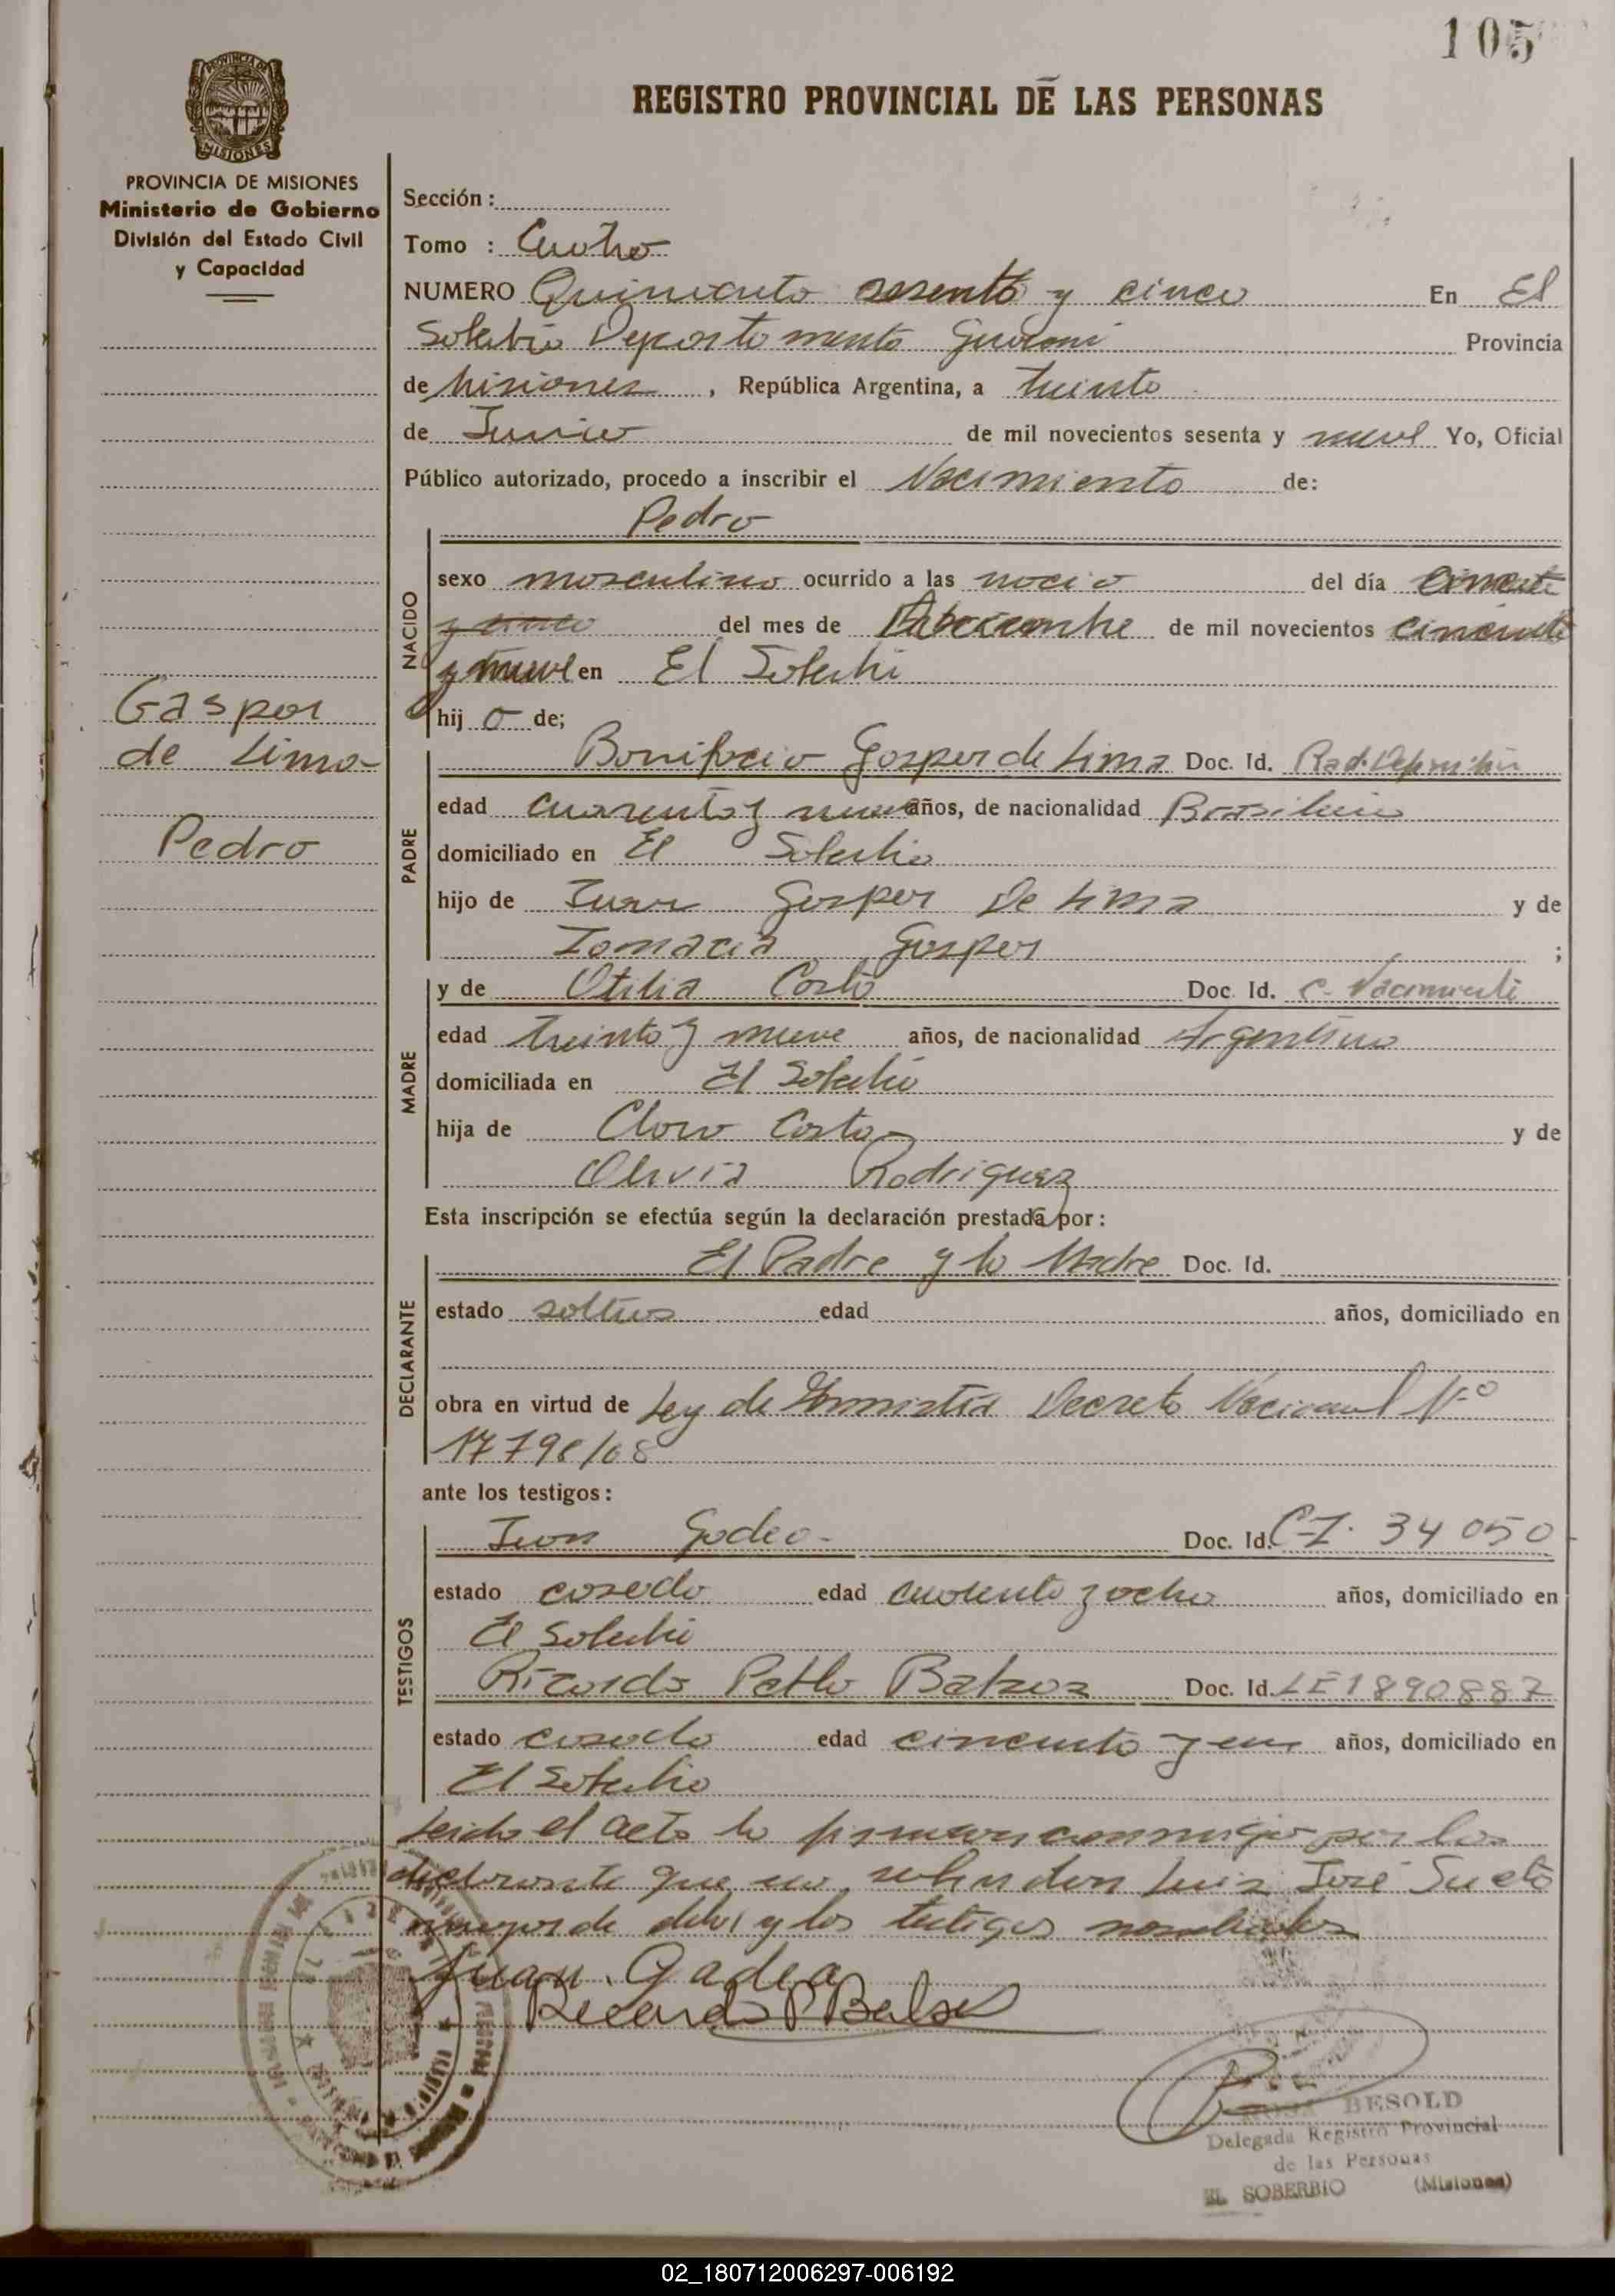 105
REGISTRO PROVINCIAL DE LAS PERSONAS
PROVINCIA DE MISIONES
Ministerio de Gobierno
División del Estado Civil
y Capacidad
Sección :
Tomo : Cuatro
NUMERO Quinientos sesenta y cinco En El
Soberbio Departamento Guaraní Provincia
de Misiones , República Argentina, a treinta
de Junio de mil novecientos sesenta y nueve Yo, Oficial
Público autorizado, procedo a inscribir el Nacimiento de:
Pedro
NACIDO
sexo masculino ocurrido a las del día
del mes de de mil novecientos cincuenta
y nueve en El Soberbio
hij o de;
Gaspar
de Lima
Pedro
PADRE
Bonifacio Gaspar de Lima Doc. Id. Rad. Definitiva
edad cuarenta y nueve años, de nacionalidad Brasilero
domiciliado en El Soberbio
hijo de Juan Gaspar De Lima y de
Tomacia Gaspar ;
MADRE
y de Otilia Costa Doc. Id. C. Nacimiento
edad treinta y nueve años, de nacionalidad Argentina
domiciliada en El Soberbio
hija de Claro Costa y de
Olivia Rodriguez
Esta inscripción se efectúa según la declaración prestada por :
DECLARANTE
El Padre y la Madre Doc. Id.
estado solteros edad años, domiciliado en
obra en virtud de Ley de Amnistia Decreto Nacional Nº
17798/68
ante los testigos :
TESTIGOS
Juan Gadea - Doc. Id. C-I. 34050
estado casado edad cuarenta y ocho años, domiciliado en
El Soberbio
Ricardo Pablo Doc. Id. LE 1890887
estado casado edad cincuenta y un años, domiciliado en
El Soberbio
Leida el acta la firman conmigo por los
declarante que no Luis José
mayor de edad y los testigos nombrados
Juan. Gadea
Ricardo P
BESOLD
Delegada Registro Provincial
de las Personas
EL SOBERBIO (Misiones)
02_180712006297-006192